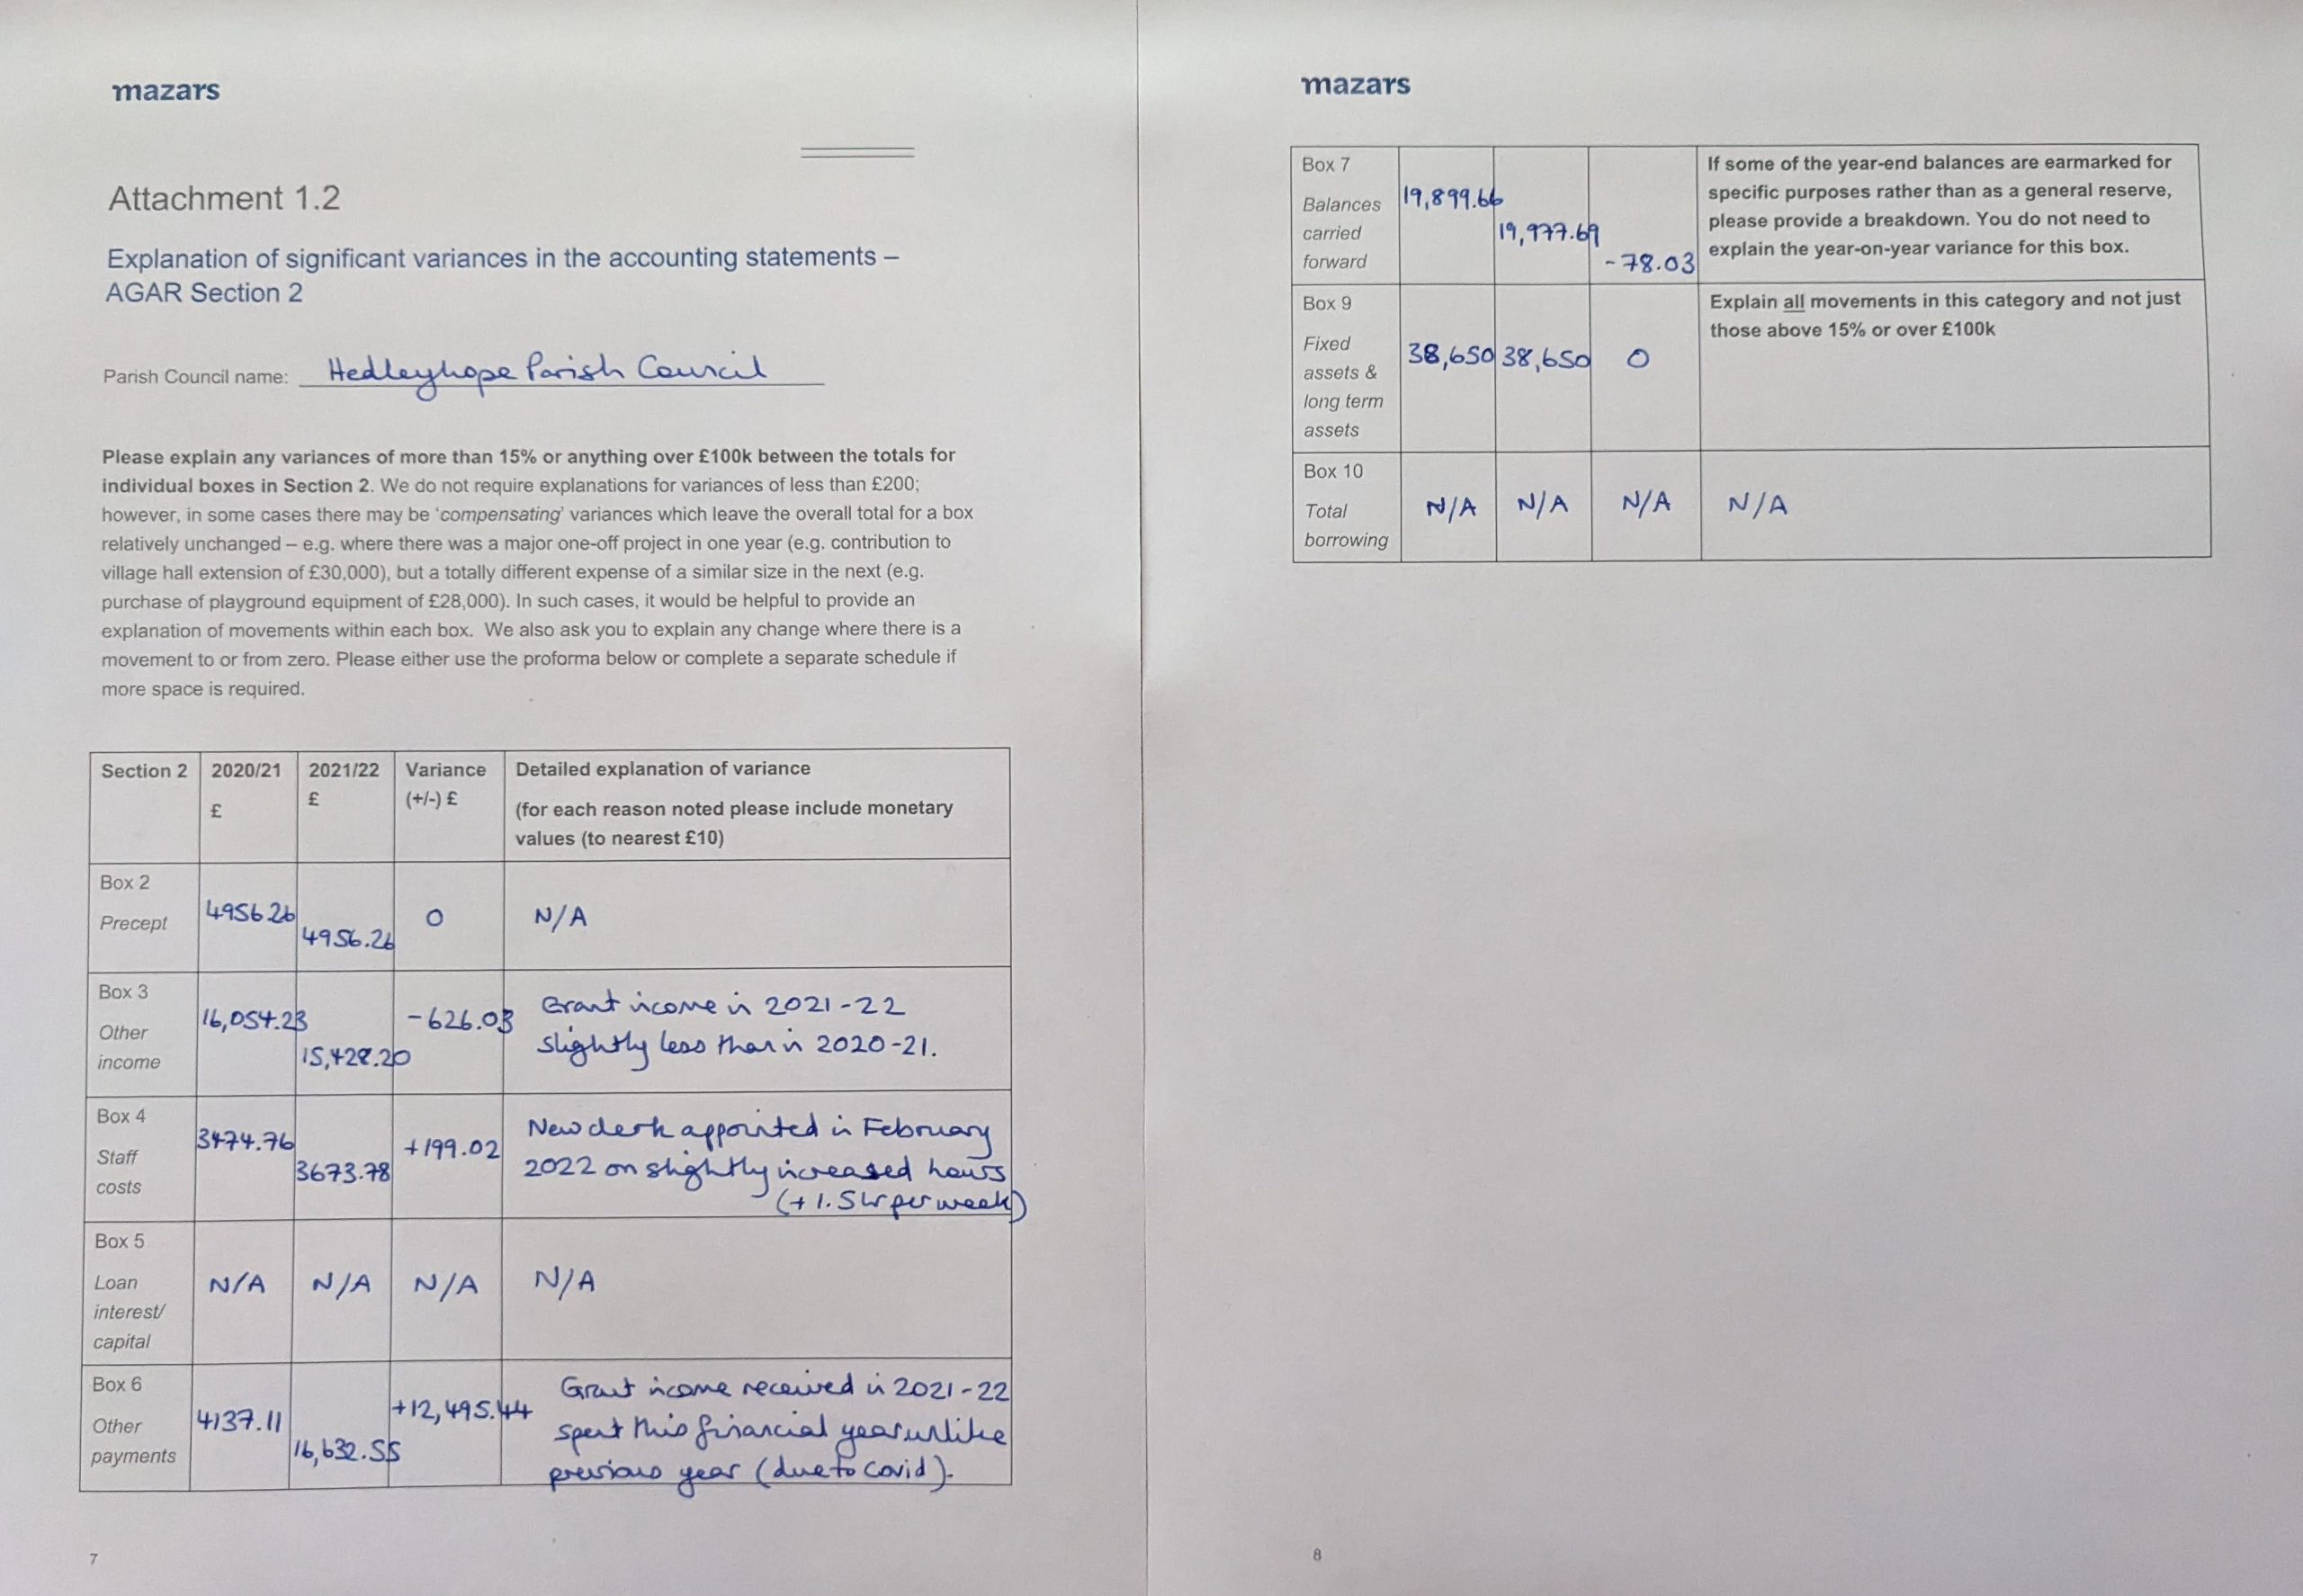 mazars
Attachment 1.2
Explanation of significant variances in the accounting statements –
AGAR Section 2
Parish Council name: Hedleyhope Parish Council
Please explain any variances of more than 15% or anything over £100k between the totals for
individual boxes in Section 2. We do not require explanations for variances of less than £200;
however, in some cases there may be ‘compensating’ variances which leave the overall total for a box
relatively unchanged – e.g. where there was a major one-off project in one year (e.g. contribution to
village hall extension of £30,000), but a totally different expense of a similar size in the next (e.g.
purchase of playground equipment of £28,000). In such cases, it would be helpful to provide an
explanation of movements within each box. We also ask you to explain any change where there is a
movement to or from zero. Please either use the proforma below or complete a separate schedule if
more space is required.
Section 2 2020/21 2021/22 Variance Detailed explanation of variance
£ £ (+/-) £ (for each reason noted please include monetary
values (to nearest £10)
Box 2
Precept 4956.26 4956.26 0 N/A
Box 3
Other
income 16,054.23 15,428.20 -626.03 Grant income in 2021-22
slightly less than in 2020-21.
Box 4
Staff
costs 3474.76 3673.78 +199.02 New clerk appointed in February
2022 on slightly increased hours
(+1.5hr per week)
Box 5
Loan
interest/
capital N/A N/A N/A N/A
Box 6
Other
payments 4137.11 16,632.55 +12,495.44 Grant income received in 2021-22
spent this financial year unlike
previous year (due to covid).
7
mazars
Box 7
Balances
carried
forward 19,899.66 19,977.69 -78.03 If some of the year-end balances are earmarked for
specific purposes rather than as a general reserve,
please provide a breakdown. You do not need to
explain the year-on-year variance for this box.
Box 9
Fixed
assets &
long term
assets 38,650 38,650 0 Explain all movements in this category and not just
those above 15% or over £100k
Box 10
Total
borrowing N/A N/A N/A N/A
8